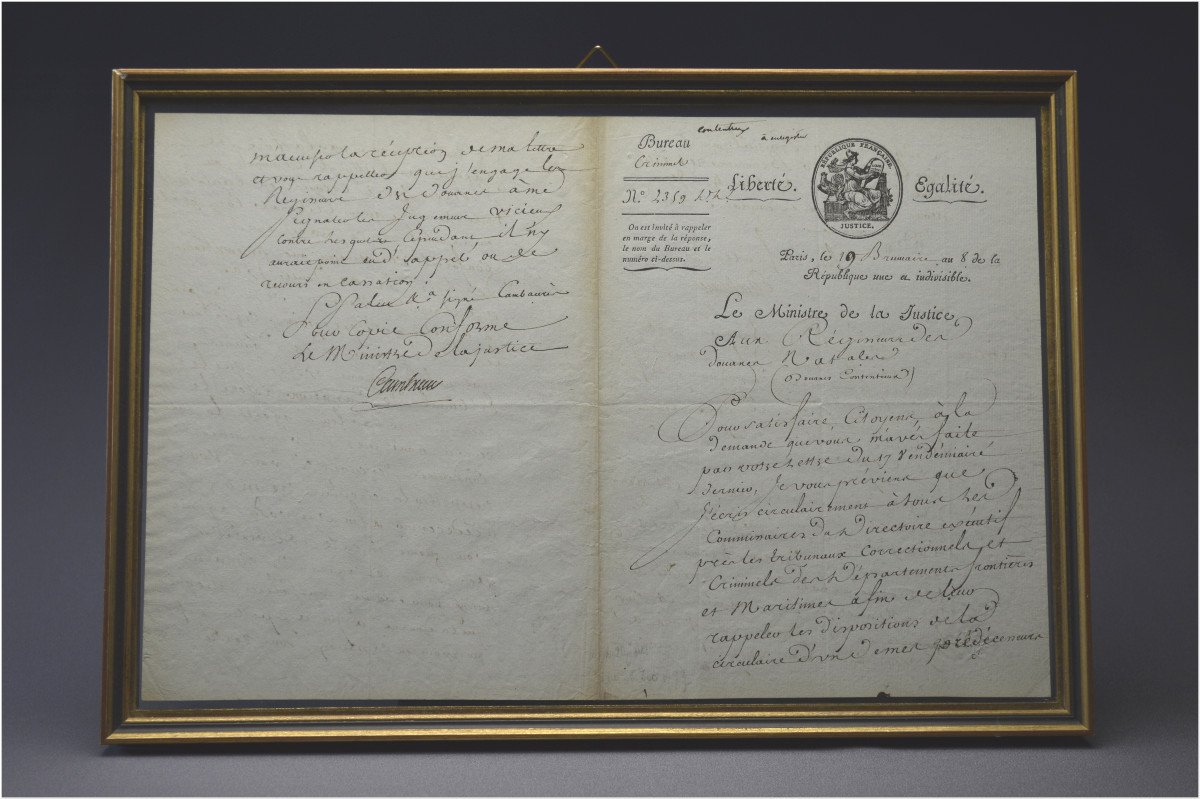 m'accuser la réception de ma lettre
et vous rappeller que j'engage les
Régisseurs des Douanes à me
signaler les Jugemens vicieux
contre lesquels cependant il n'y
aurait point eu d'appel ou de
recours en cassation.
Salut &a signé Cambacérès
Pour Copie Conforme
Le Ministre de la justice
Cambacérès
contentieux
à enregistrer
Bureau
Criminel
N.º 2359
On est invité à rappeler
en marge de la réponse,
le nom du Bureau et le
numéro ci-dessus.
Liberté.
RÉPUBLIQUE FRANÇAISE.
JUSTICE.
Egalité.
Paris, le 19 Brumaire an 8 de la
République une et indivisible.
Le Ministre de la Justice
Aux Régisseurs des
douanes Nationales
Pour satisfaire, Citoyens, à la
demande que vous m'avés faite
par votre Lettre du 17 Vendémiaire
dernier, Je vous préviens que
J'écris circulairement à tous les
Commissaires du Directoire exécutif
près les tribunaux Correctionnels et
Criminels des Départements frontières
et Maritimes afin de leur
rappeler les dispositions de la
circulaire d'un de mes prédécesseurs